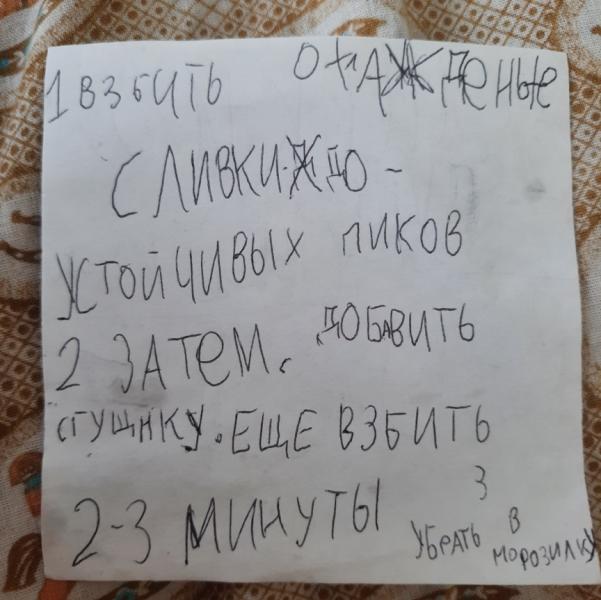 1 ВЗБИТЬ ОХЛАЖДЕНЫЕ
СЛИВКИ ДО -
УСТОЙЧИВЫХ ПИКОВ
2 ЗАТЕМ. ДОБАВИТЬ
СГУЩНКУ. ЕЩЕ ВЗБИТЬ
2-3 МИНУТЫ 3
УБРАТЬ В МОРОЗИЛКУ